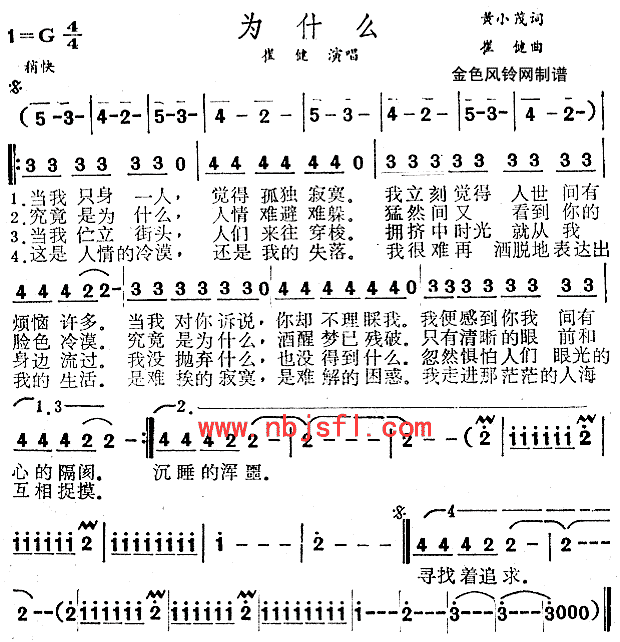 为什么
1=G 4/4
黄小茂词
崔健 演唱
崔健曲
稍快
金色风铃网制谱
(5-3- | 4-2- | 5-3- | 4 - 2 - | 5 - 3 - | 4 - 2 - | 5 - 3 - | 4 - 2 - )
3 3 3 3 3 3 0 | 4 4 4 4 4 4 0 | 3 3 3 3 3 3 3 3
1.当我 只身 一人， 觉得 孤独 寂寞。 我立刻觉得 人世 间有
2.究竟 是为 什么， 人情 难避 难躲。 猛然间又 看到 你的
3.当我 伫立 街头， 人们 来往 穿梭。 拥挤中时光 就从 我
4.这是 人情的冷漠， 还是 我的 失落。 我很难再 洒脱地表达出
4 4 4 2 2 - | 3 3 3 3 3 3 3 0 | 4 4 4 4 4 4 4 0 | 3 3 3 3 3 3 3 3
烦恼 许多。 当我 对你 诉说，你却 不理睬我。我便感到你我 间有
脸色 冷漠。 究竟 是为什么，酒醒 梦已残破。只有清晰的眼 前和
身边 流过。 我没 抛弃什么，也没 得到什么。忽然惧怕人们 眼光的
我的 生活。 是难 挨的寂寞，是难 解的困惑。我走进那茫茫的人海
1.3. 2.
www.nbjsfl.com
4 4 4 2 2 - :‖ 4 4 4 2 2 - | 2 - - - | 2 - - ( 2 | i i i i i i i 2
心的隔阂。 沉睡的浑噩。
互相捉摸。
i i i i i i i 2 | i i i i i i i i | i - - - | 2 - - - ‖ 4 4 4 2 | 2 - - -
4
寻找着追求。
2 - - (2 | i i i i i i i 2 | i i i i i i i 2 | i i i i i i i i | i - - - | 2 - - - | 3 - - - | 3 0 0 0 ) ‖